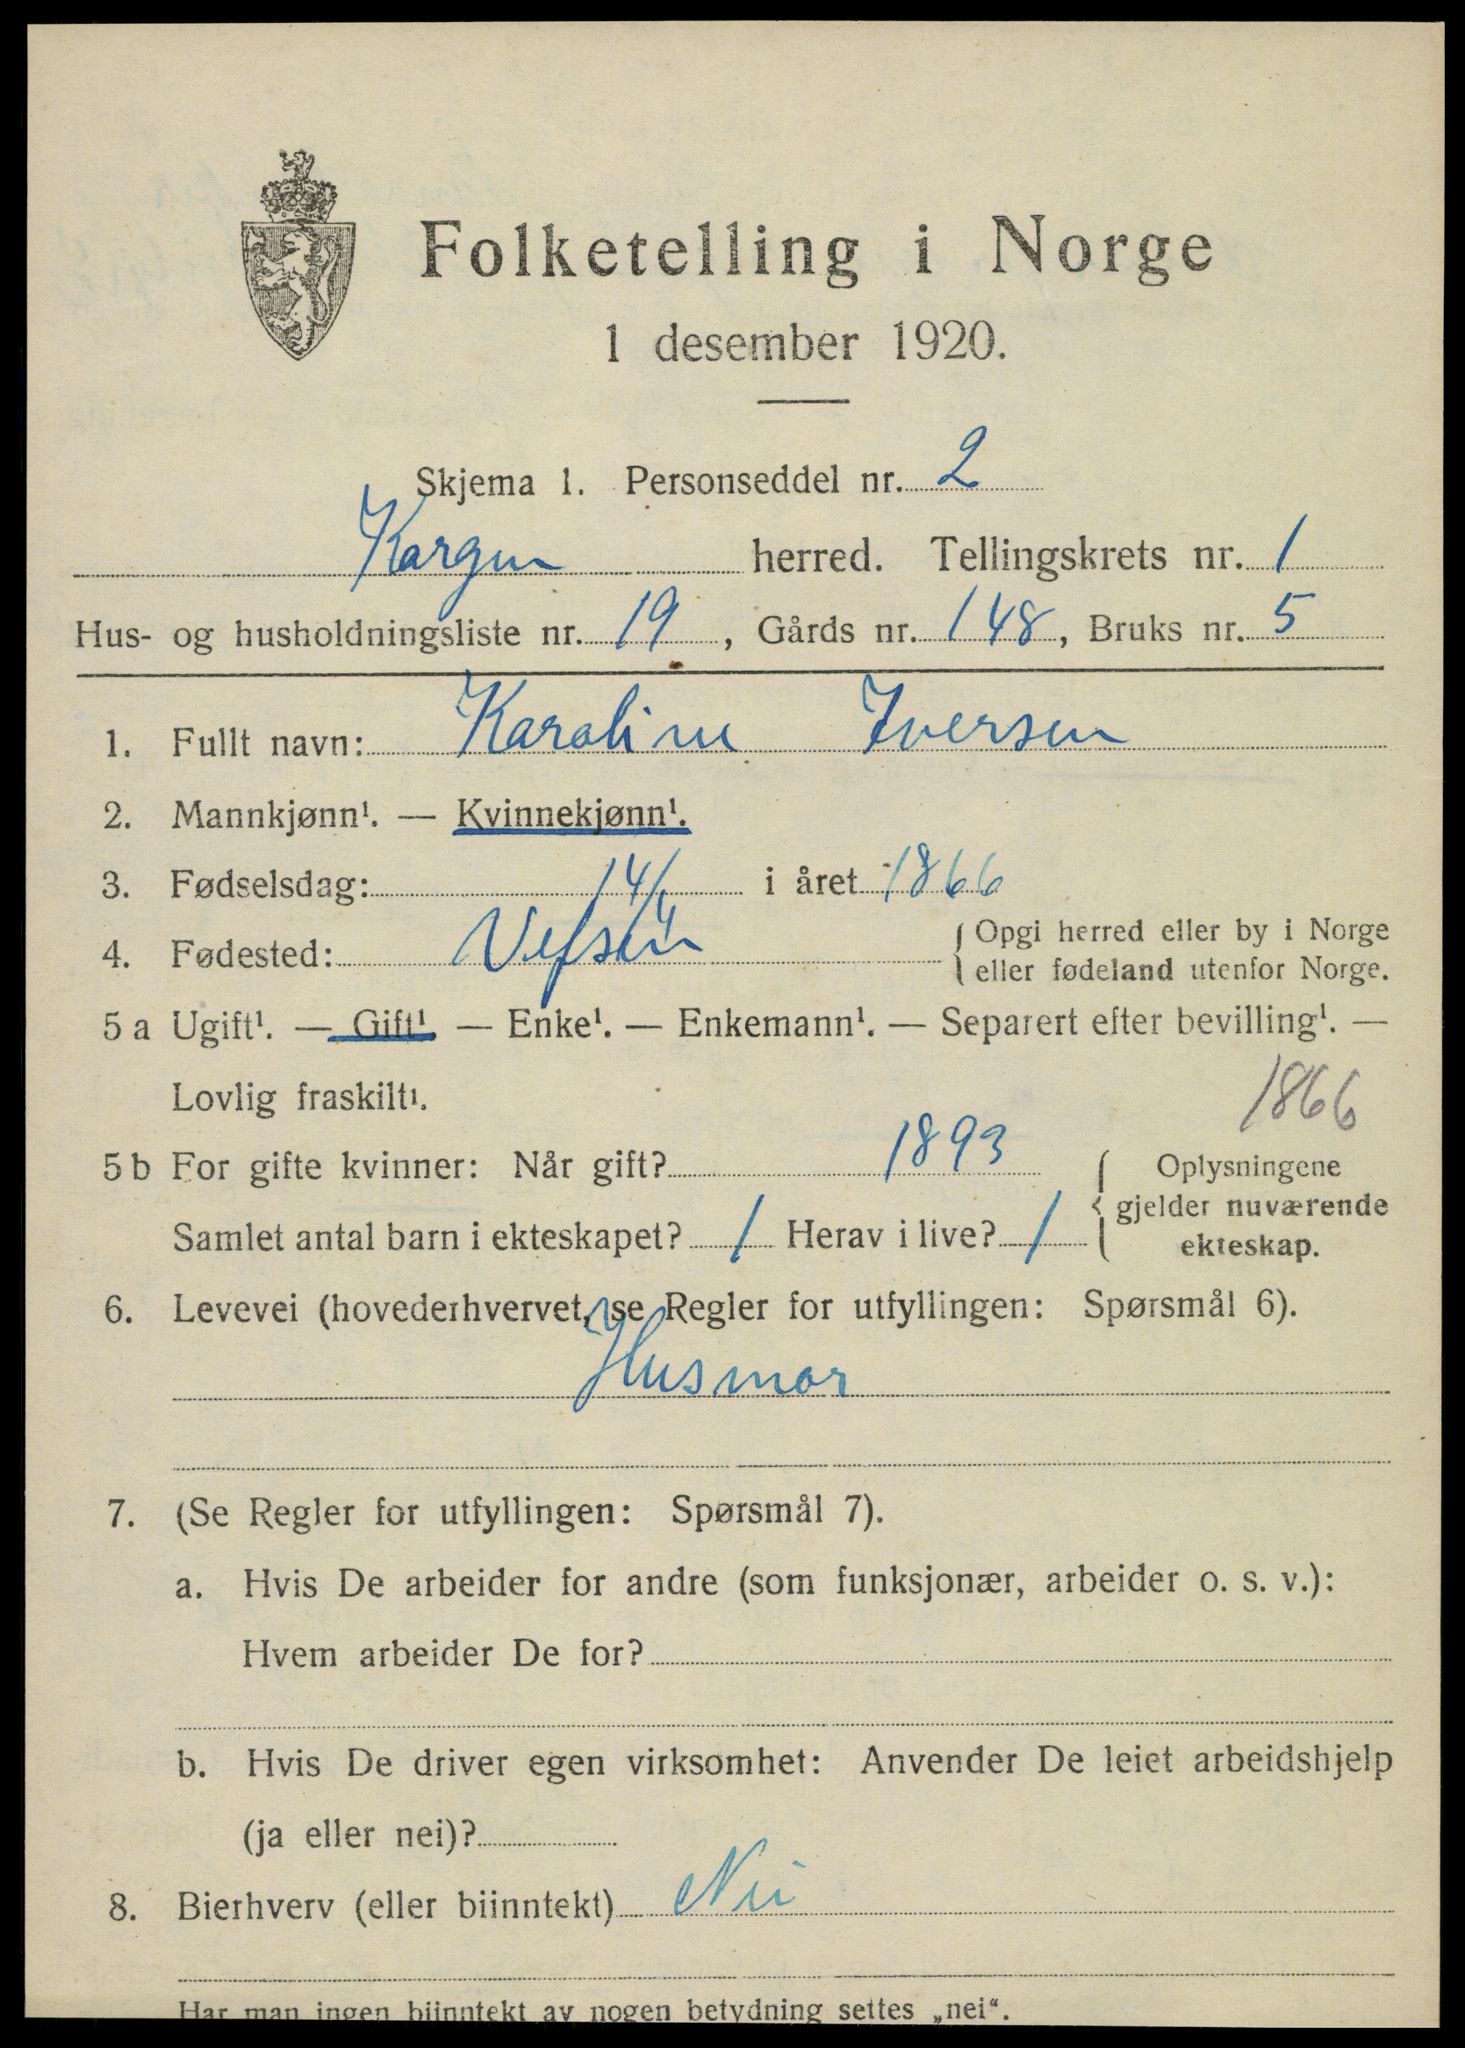 Folketelling i Norge
1 desember 1920.
Skjema 1. Personseddel nr. 2
Korgen herred. Tellingskrets nr. 1
Hus- og husholdningsliste nr. 19, Gårds nr. 148, Bruks nr. 5
1. Fullt navn: Karoline Iversen
2. Mannkjønn¹. — Kvinnekjønn¹.
3. Fødselsdag: 14/ i året 1866
4. Fødested: Vefsen { Opgi herred eller by i Norge
eller fødeland utenfor Norge.
5 a Ugift¹. — Gift¹ — Enke¹. — Enkemann¹. — Separert efter bevilling¹. —
Lovlig fraskilt¹.
1866
5 b For gifte kvinner: Når gift? 1893
Samlet antal barn i ekteskapet? 1 Herav i live? 1
{ Oplysningene
gjelder nuværende
ekteskap.
6. Levevei (hovederhvervet, se Regler for utfyllingen: Spørsmål 6).
Husmor
7. (Se Regler for utfyllingen: Spørsmål 7).
a. Hvis De arbeider for andre (som funksjonær, arbeider o. s. v.):
Hvem arbeider De for?
b. Hvis De driver egen virksomhet: Anvender De leiet arbeidshjelp
(ja eller nei)?
8. Bierhverv (eller biinntekt) Nei
Har man ingen biinntekt av nogen betydning settes „nei“.